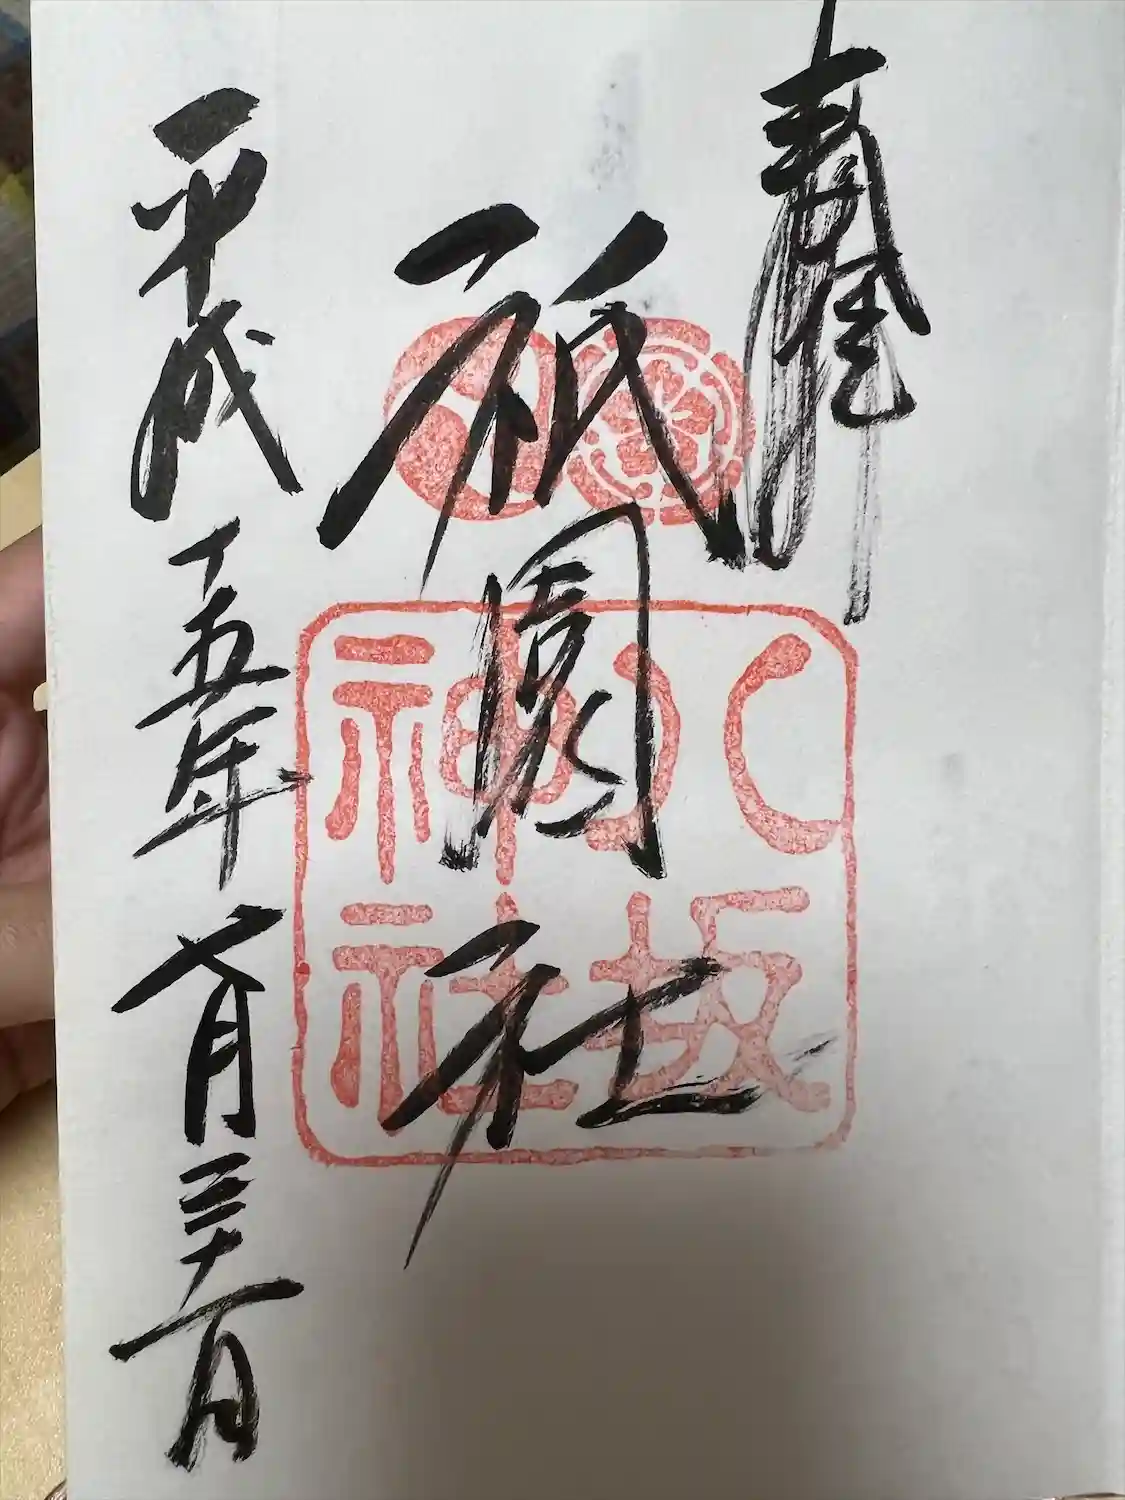 奉拝
祇園社
八坂
神社
平成十五年七月二十一日